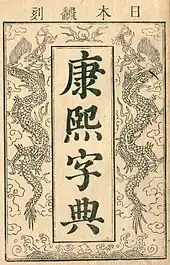 日本飜刻
康熙字典